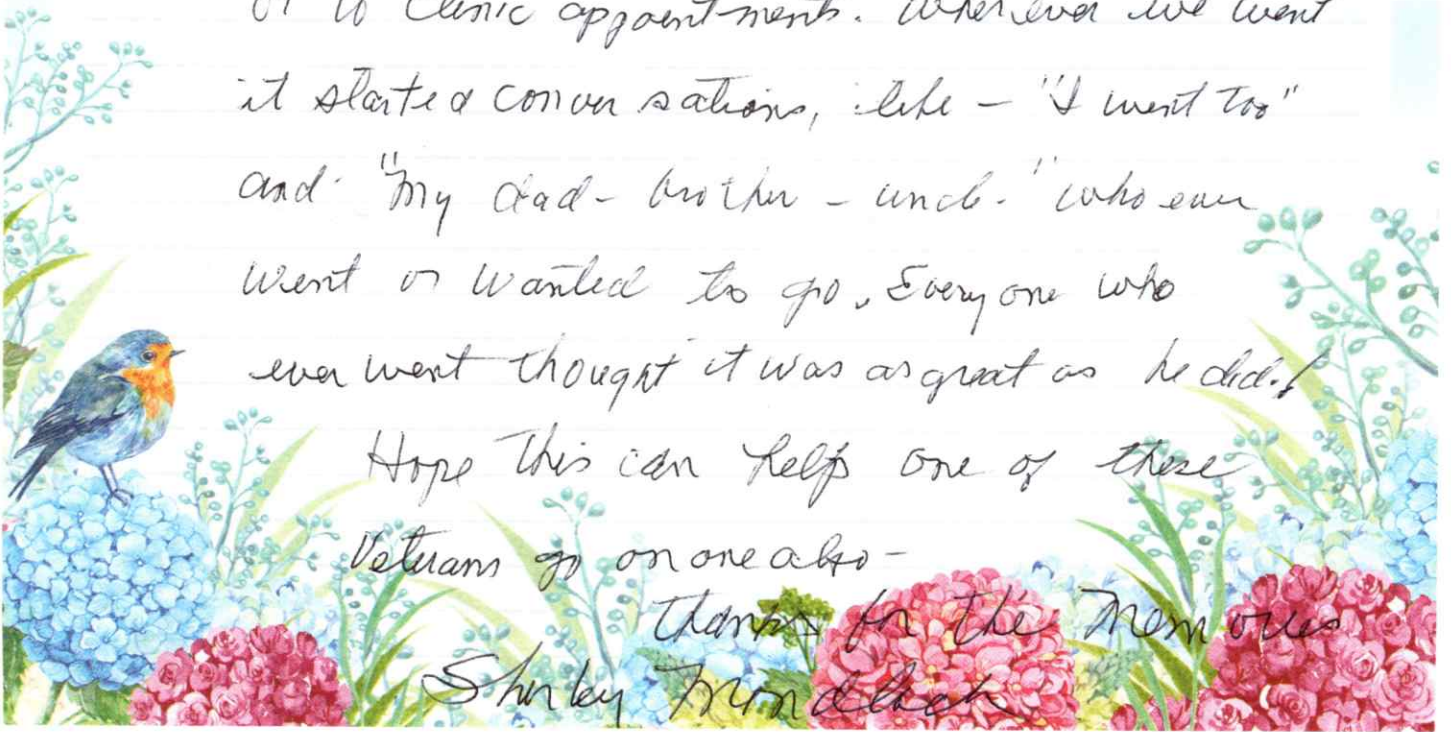 or to clinic appointments. Wherever we went
it started conversations, like – "I went too"
and "My dad – brother – uncle – " who ever
went or wanted to go. Everyone who
ever went thought it was as great as he did!
Hope this can help one of these
Veterans go on one also –
Thanks for the Memories
Shirley Mondloch